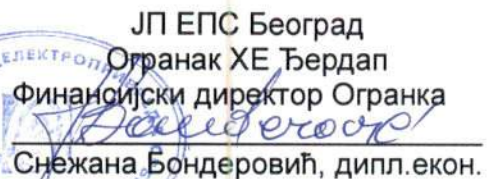 ЈП ЕПС Београд
Огранак ХЕ Ђердап
Финансијски директор Огранка
Снежана Бондеровић, дипл.екон.